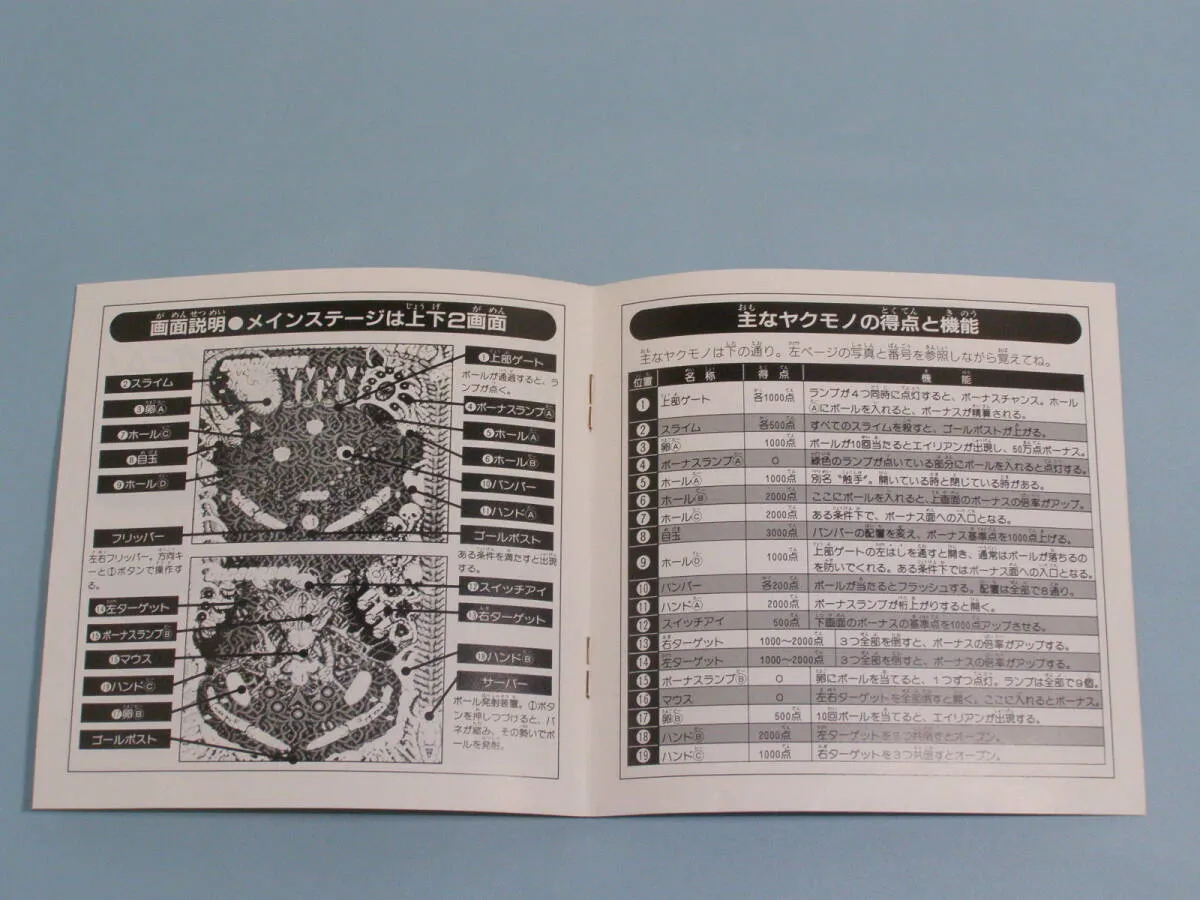 画面説明●メインステージは上下2画面
①上部ゲート
ボールが通過すると、ラ
ンプが点く。
②スライム
③卵Ⓐ
④ボーナスランプⒶ
⑦ホールⒸ
⑤ホールⒶ
⑧目玉
⑥ホールⒷ
⑨ホールⒹ
⑩バンパー
⑪ハンドⒶ
フリッパー
左右フリッパー。方向キ
ーと①ボタンで操作す
る。
ゴールポスト
ある条件を満たすと出現
する。
⑫スイッチアイ
⑭左ターゲット
⑬右ターゲット
⑮ボーナスランプⒷ
⑯マウス
⑱ハンドⒷ
⑲ハンドⒸ
サーバー
ボール発射装置。①ボタ
ンを押しつづけると、バ
ネが縮み、その勢いでボ
ールを発射。
⑰卵Ⓑ
ゴールポスト
主なヤクモノの得点と機能
主なヤクモノは下の通り。左ページの写真と番号を参照しながら覚えてね。
位置 名称 得点 機能
1 上部ゲート 各1000点 ランプが4つ同時に点灯すると、ボーナスチャンス。ホール
Ⓐにボールを入れると、ボーナスが精算される。
2 スライム 各500点 すべてのスライムを殺すと、ゴールポストが上がる。
3 卵Ⓐ 1000点 ボールが10回当たるとエイリアンが出現し、50万点ボーナス。
4 ボーナスランプⒶ 0 緑色のランプが点いている部分にボールを入れると点灯する。
5 ホールⒶ 1000点 別名“触手”。開いている時と閉じている時がある。
6 ホールⒷ 2000点 ここにボールを入れると、上画面のボーナスの倍率がアップ。
7 ホールⒸ 2000点 ある条件下で、ボーナス面への入口となる。
8 目玉 3000点 バンパーの配置を変え、ボーナス基準点を1000点上げる。
9 ホールⒹ 1000点 上部ゲートの左はしを通すと開き、通常はボールが落ちるの
を防いでくれる。ある条件下ではボーナス面への入口となる。
10 バンパー 各200点 ボールが当たるとフラッシュする。配置は全部で8通り。
11 ハンドⒶ 2000点 ボーナスランプが桁上がりすると開く。
12 スイッチアイ 500点 下画面のボーナスの基準点を1000点アップさせる。
13 右ターゲット 1000〜2000点 3つ全部を倒すと、ボーナスの倍率がアップする。
14 左ターゲット 1000〜2000点 3つ全部を倒すと、ボーナスの倍率がアップする。
15 ボーナスランプⒷ 0 卵にボールを当てると、1つずつ点灯。ランプは全部で9個。
16 マウス 0 左右ターゲットを全部倒すと開く。ここに入れるとボーナス。
17 卵Ⓑ 500点 10回ボールを当てると、エイリアンが出現する。
18 ハンドⒷ 2000点 左ターゲットを3つ共倒すとオープン。
19 ハンドⒸ 1000点 右ターゲットを3つ共倒すとオープン。